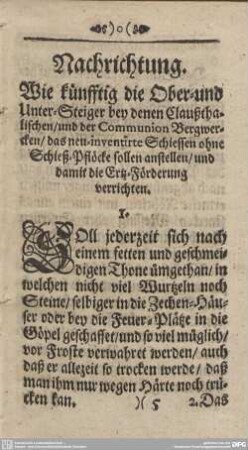 )o(
Nachrichtung.
Wie künfftig die Ober-und
Unter-Steiger bey denen Claußtha-
lischen/und der Communion Bergwer-
cken/das neu-inventirte Schiessen ohne
Schieß-Pflöcke sollen anstellen/und
damit die Ertz-Förderung
verrichten.
1.
SOll jederzeit sich nach
einem fetten und geschmei-
digen Thone ümgethan/in
welchen nicht viel Wurtzeln noch
Steine/selbiger in die Zechen-Häu-
ser oder bey die Feuer-Plätze in die
Göpel geschaffet/und so viel müglich/
vor Froste verwahret werden/auch
daß er allezeit so trocken werde/daß
man ihm nur wegen Härte noch trü-
cken kan.
)( 5
2. Das